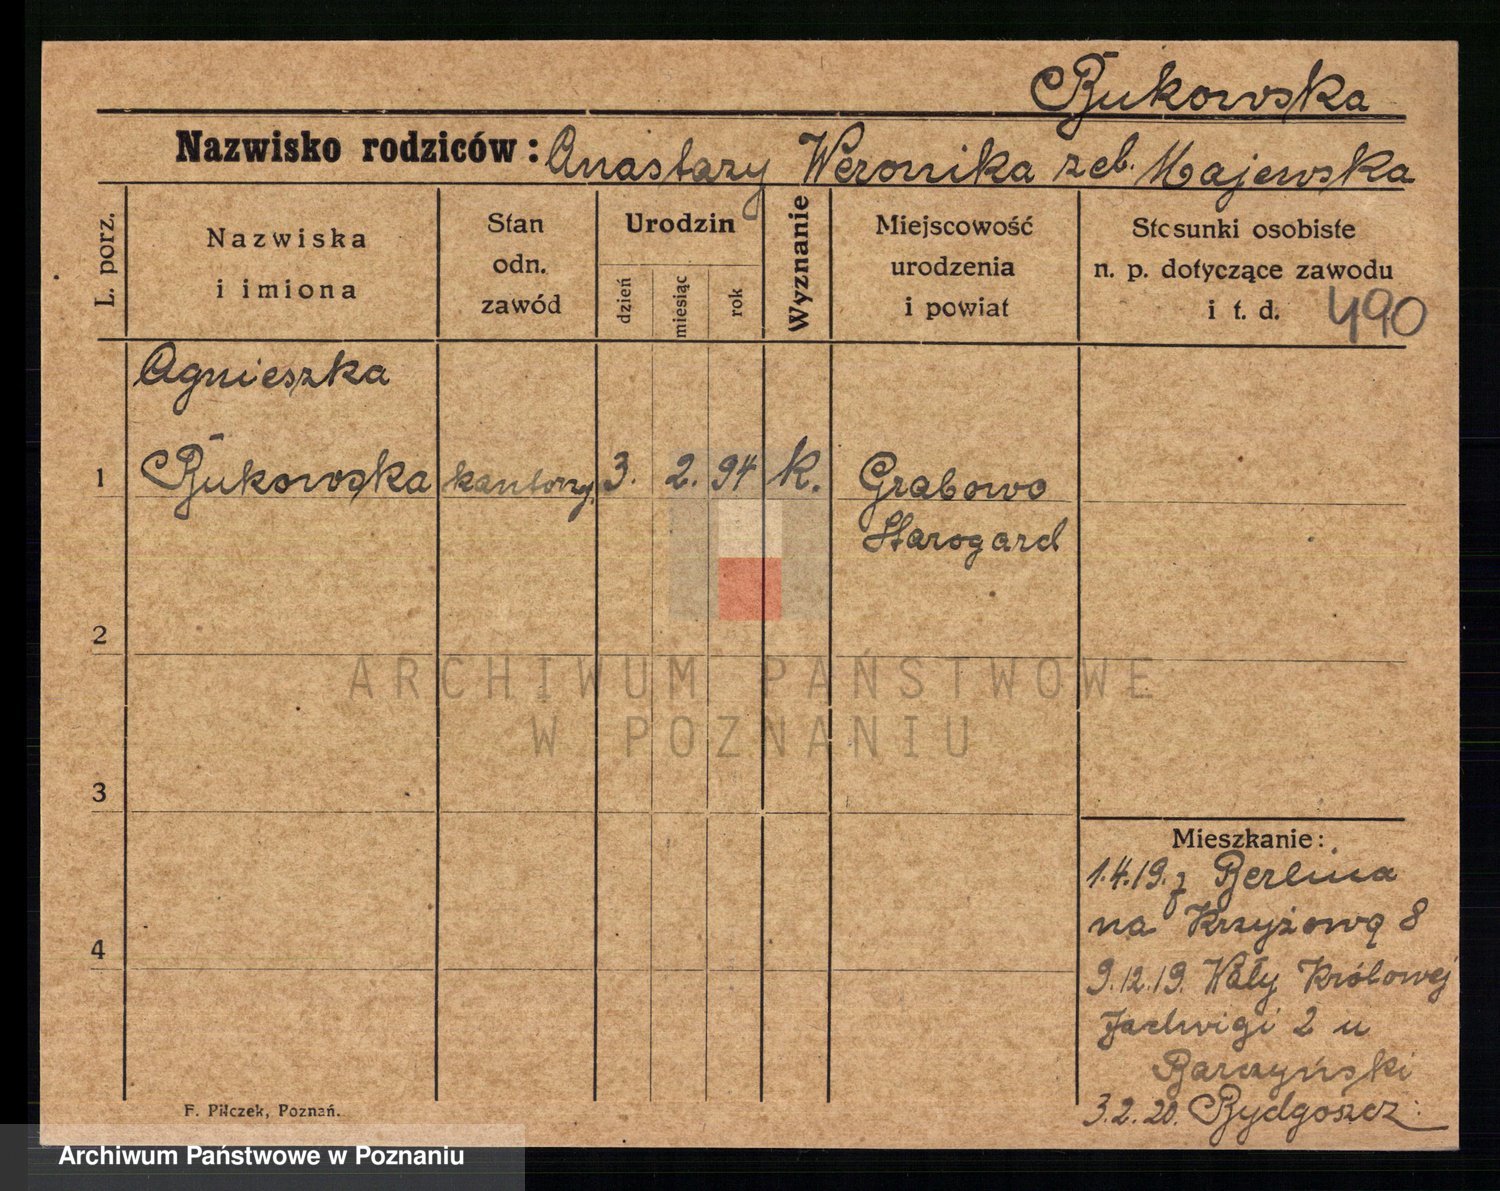 Bukowska
Nazwisko rodziców: Anastazy Weronika zeb. Majewska
L. porz.
Nazwiska
i imiona
Stan
odn.
zawód
Urodzin
dzień
miesiąc
rok
Wyznanie
Miejscowość
urodzenia
i powiat
Stosunki osobiste
n. p. dotyczące zawodu
i t. d. 490
Agnieszka
1 Bukowska kantorzy. 3. 2. 94 k. Grabowo
Starogard
2
3
4
Mieszkanie:
1.4.19. z Berlina
na Krzyżową 8
9.12.19. Wały Królowej
Jadwigi 2 u
Barczyński
3.2.20. Bydgoszcz.
F. Pilczek, Poznań.
ARCHIWUM PAŃSTWOWE
W POZNANIU
Archiwum Państwowe w Poznaniu